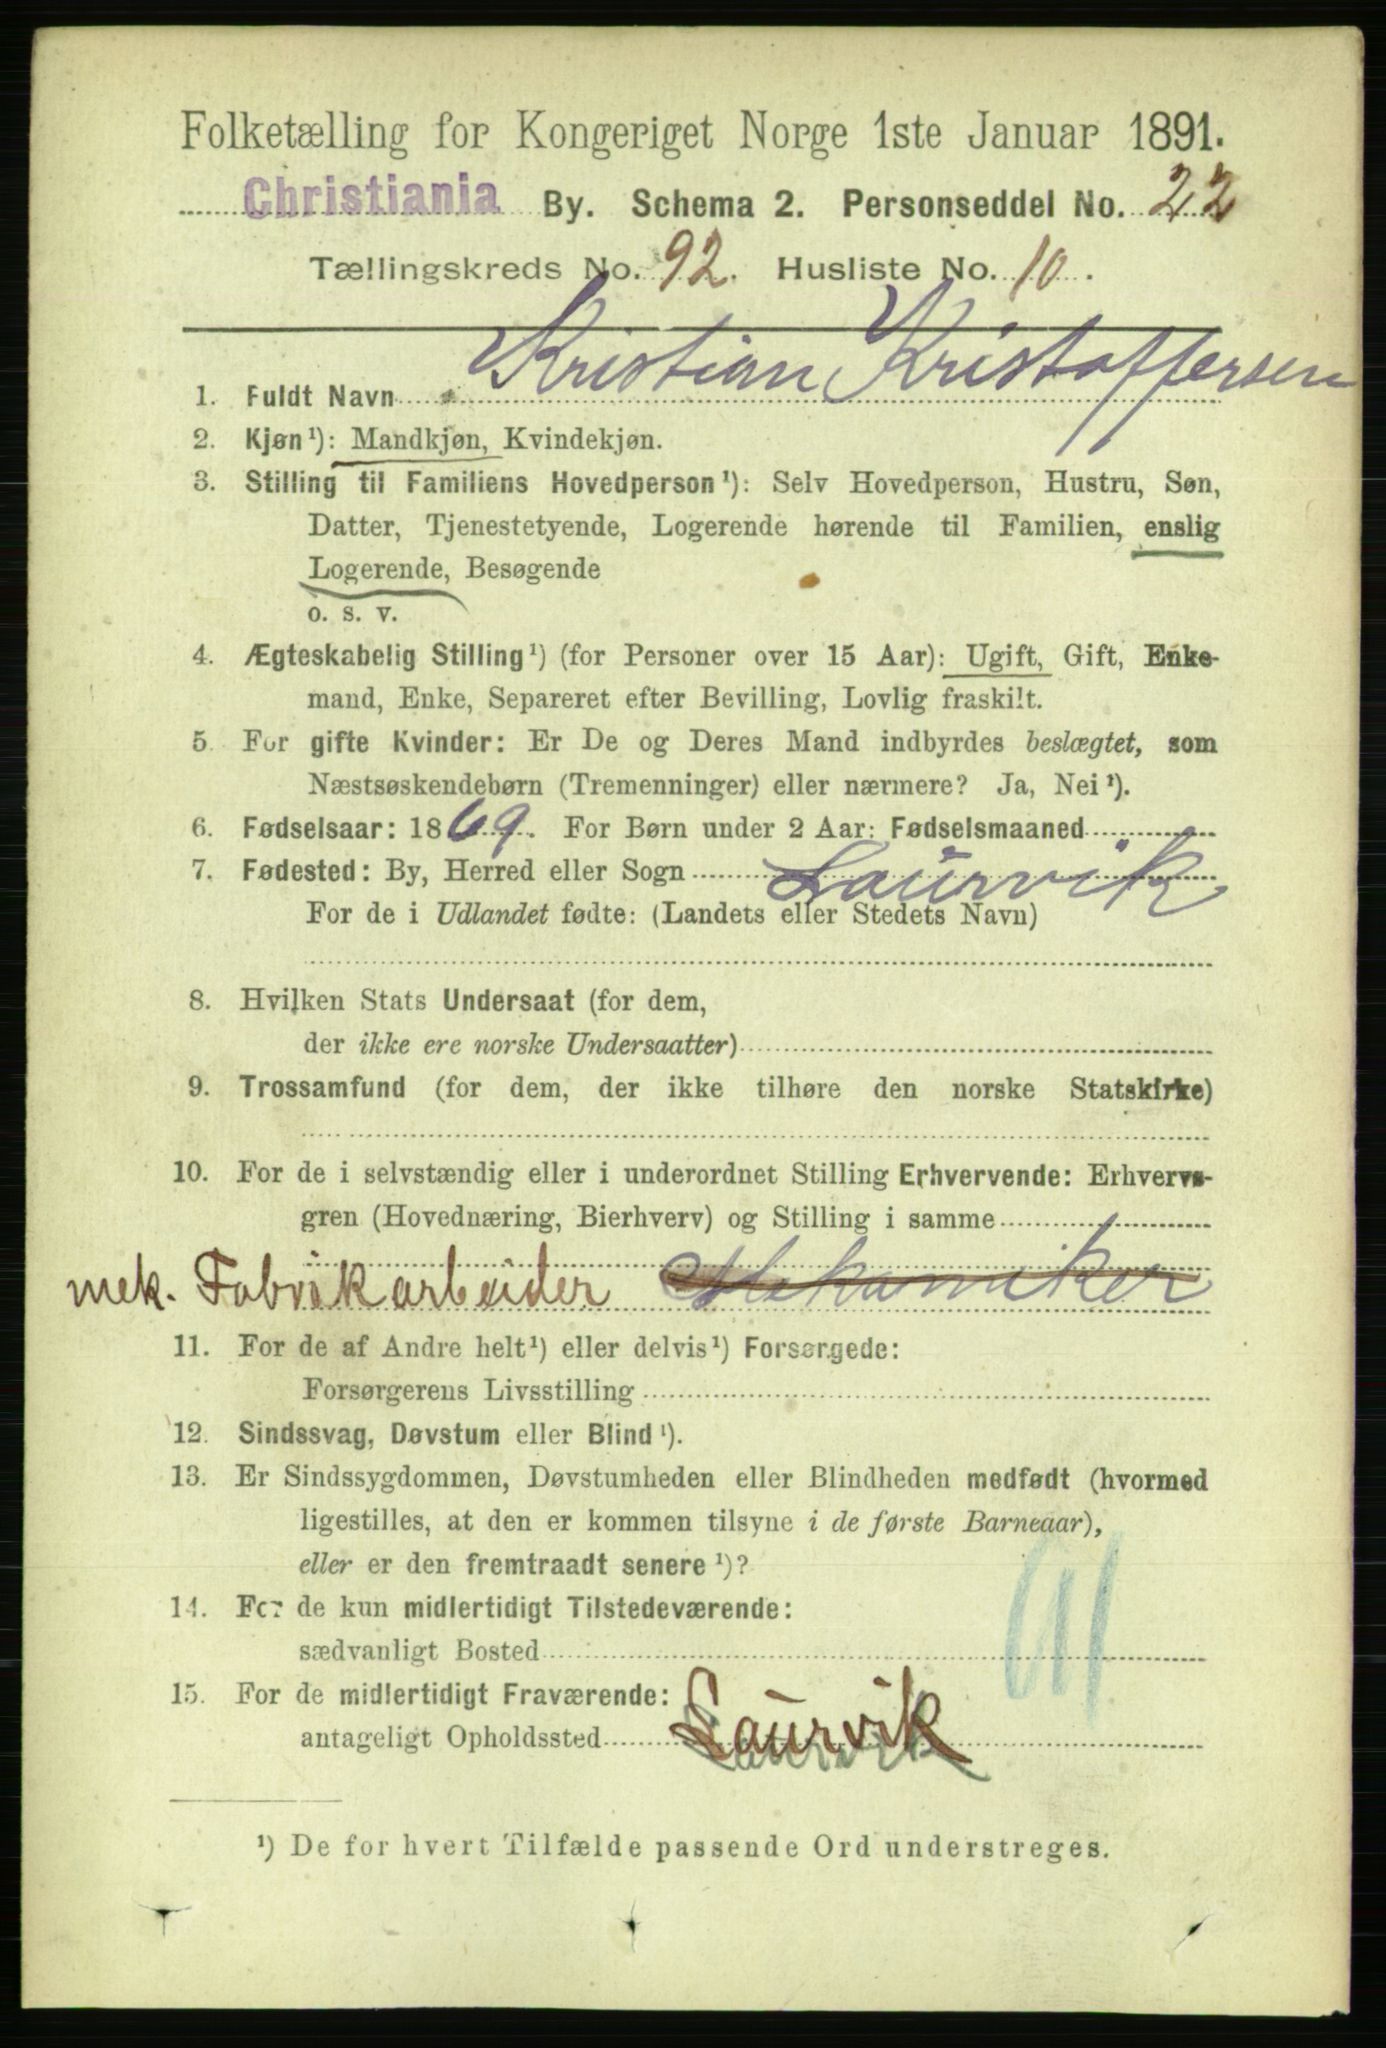 Folketælling for Kongeriget Norge 1ste Januar 1891.
Christiania By. Schema 2. Personseddel No. 22
Tællingskreds No. 92. Husliste No. 10.
1. Fuldt Navn Kristian Kristoffersen
2. Kjøn¹): Mandkjøn, Kvindekjøn.
3. Stilling til Familiens Hovedperson¹): Selv Hovedperson, Hustru, Søn,
Datter, Tjenestetyende, Logerende hørende til Familien, enslig
Logerende, Besøgende
o. s. v.
4. Ægteskabelig Stilling¹) (for Personer over 15 Aar): Ugift, Gift, Enke-
mand, Enke, Separeret efter Bevilling, Lovlig fraskilt.
5. For gifte Kvinder: Er De og Deres Mand indbyrdes beslægtet, som
Næstsøskendebørn (Tremenninger) eller nærmere? Ja, Nei¹).
6. Fødselsaar: 1869. For Børn under 2 Aar: Fødselsmaaned
7. Fødested: By, Herred eller Sogn Laurvik
For de i Udlandet fødte: (Landets eller Stedets Navn)
8. Hvilken Stats Undersaat (for dem,
der ikke ere norske Undersaatter)
9. Trossamfund (for dem, der ikke tilhøre den norske Statskirke)
10. For de i selvstændig eller i underordnet Stilling Erhvervende: Erhvervs-
gren (Hovednæring, Bierhverv) og Stilling i samme
mek. Fabrikarbeider Mekaniker
11. For de af Andre helt¹) eller delvis¹) Forsørgede:
Forsørgerens Livsstilling
12. Sindssvag, Døvstum eller Blind¹).
13. Er Sindssygdommen, Døvstumheden eller Blindheden medfødt (hvormed
ligestilles, at den er kommen tilsyne i de første Barneaar),
eller er den fremtraadt senere¹)?
14. For de kun midlertidigt Tilstedeværende:
sædvanligt Bosted
15. For de midlertidigt Fraværende:
antageligt Opholdssted Laurvik
¹) De for hvert Tilfælde passende Ord understreges.